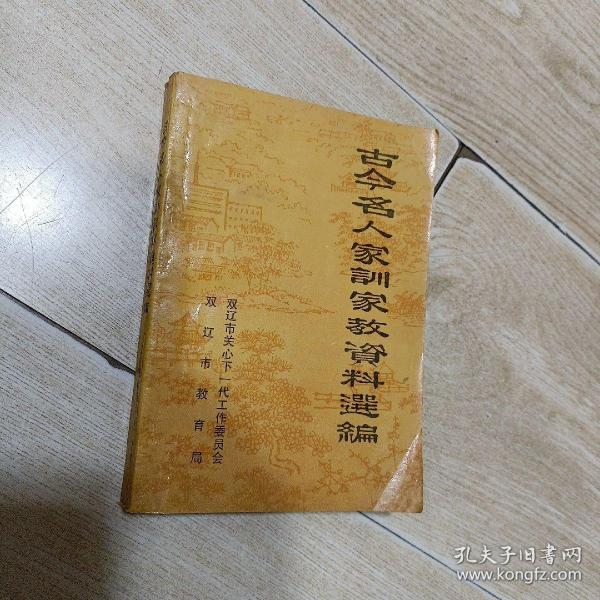 古今名人家訓家教資料選編
双辽市关心下一代工作委员会
双辽市教育局
孔夫子旧書网
www.kongfz.com